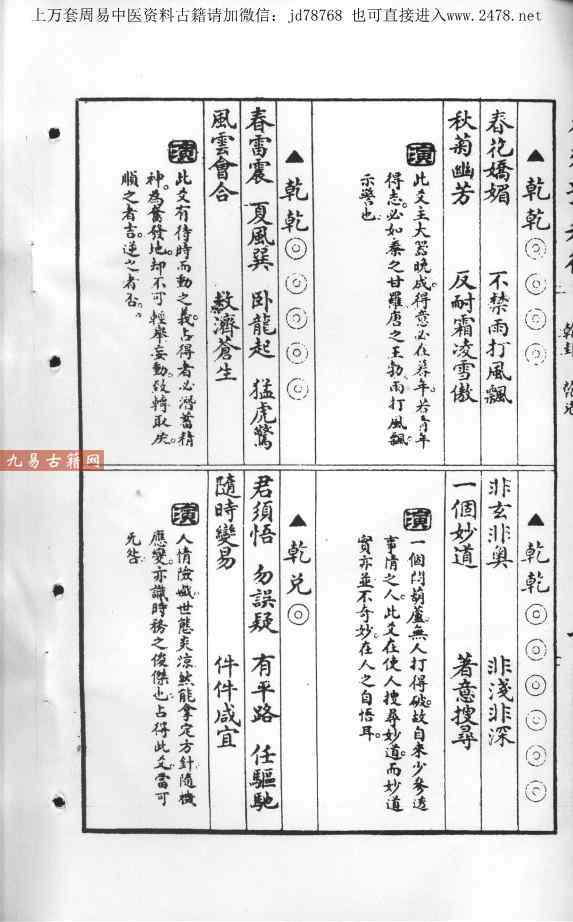 上万套周易中医资料古籍请加微信：jd78768 也可直接进入www.2478.net.
▲乾乾◎◎◎◎
春花嬌媚 不禁雨打風飄
秋菊幽芳 反耐霜凌雪傲
演 此爻主大器晚成。得意必在暮年。若青年
得志。必如秦之甘羅唐之王勃。雨打風飄
示警也
▲乾乾◎◎◎◎◎
春雷震 夏風巽 卧龍起 猛虎驚
風雲會合 救濟蒼生
演 此爻有待時而動之義。占得者必潛蓄精
神。為奮發地。却不可輕舉妄動。致轉取戾。
順之者吉。逆之者否。
▲乾乾◎◎◎◎◎◎
非玄非奧 非淺非深
一個妙道 着意搜尋
演 一個悶葫蘆。無人打得破。故自來少參透
事情之人。此爻在使人搜尋妙道。而妙道
實亦並不奇妙。在人之自悟耳。
▲乾兑◎
君須悟 勿誤疑 有平路 任驅馳
隨時變易 件件咸宜
演 人情險巇。世態炎凉。然能拿定方針。隨機
應變。亦識時務之俊傑也。占得此爻。當可
无咎。
九易古籍网